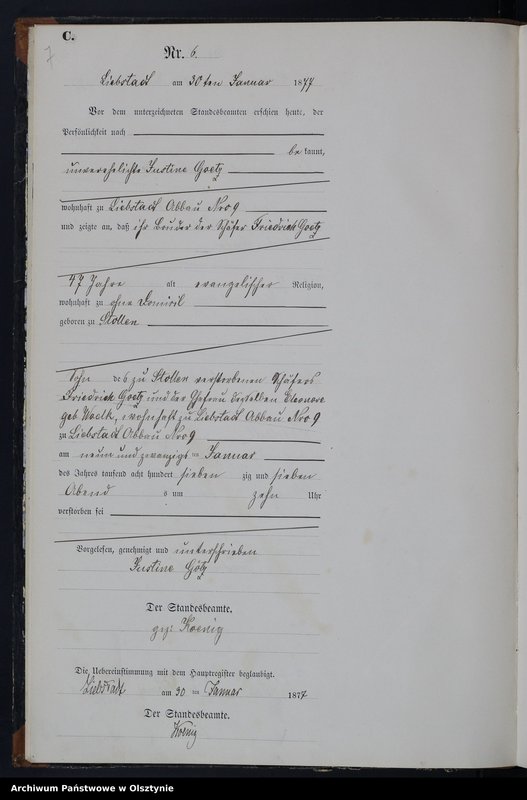 C.
7
Nr. 6.
Liebstadt am 30ten Januar 1877
Vor dem unterzeichneten Standesbeamten erschien heute, der
Persönlichkeit nach
be kannt,
unverehelichte Justine Goetz
wohnhaft zu Liebstadt Abbau Nro 9
und zeigte an, daß ihr Bruder der Schäfer Friedrich Goetz
47 Jahre alt evangelischer Religion,
wohnhaft zu ohne Domicil
geboren zu Stollen
Sohn des zu Stollen verstorbenen Schäfers
Friedrich Goetz und der Ehefrau desselben Eleonore
geb wohnhaft zu Liebstadt Abbau Nro 9
zu Liebstadt Abbau Nro 9
am neun und zwanzigsten Januar
des Jahres tausend acht hundert sieben zig und sieben
Abend s um zehn Uhr
verstorben sei
Vorgelesen, genehmigt und unterschrieben
Justine Götz
Der Standesbeamte.
gez. Koenig
Die Uebereinstimmung mit dem Hauptregister beglaubigt.
Liebstadt am 30 ten Januar 1877
Der Standesbeamte.
Koenig
Archiwum Państwowe w Olsztynie